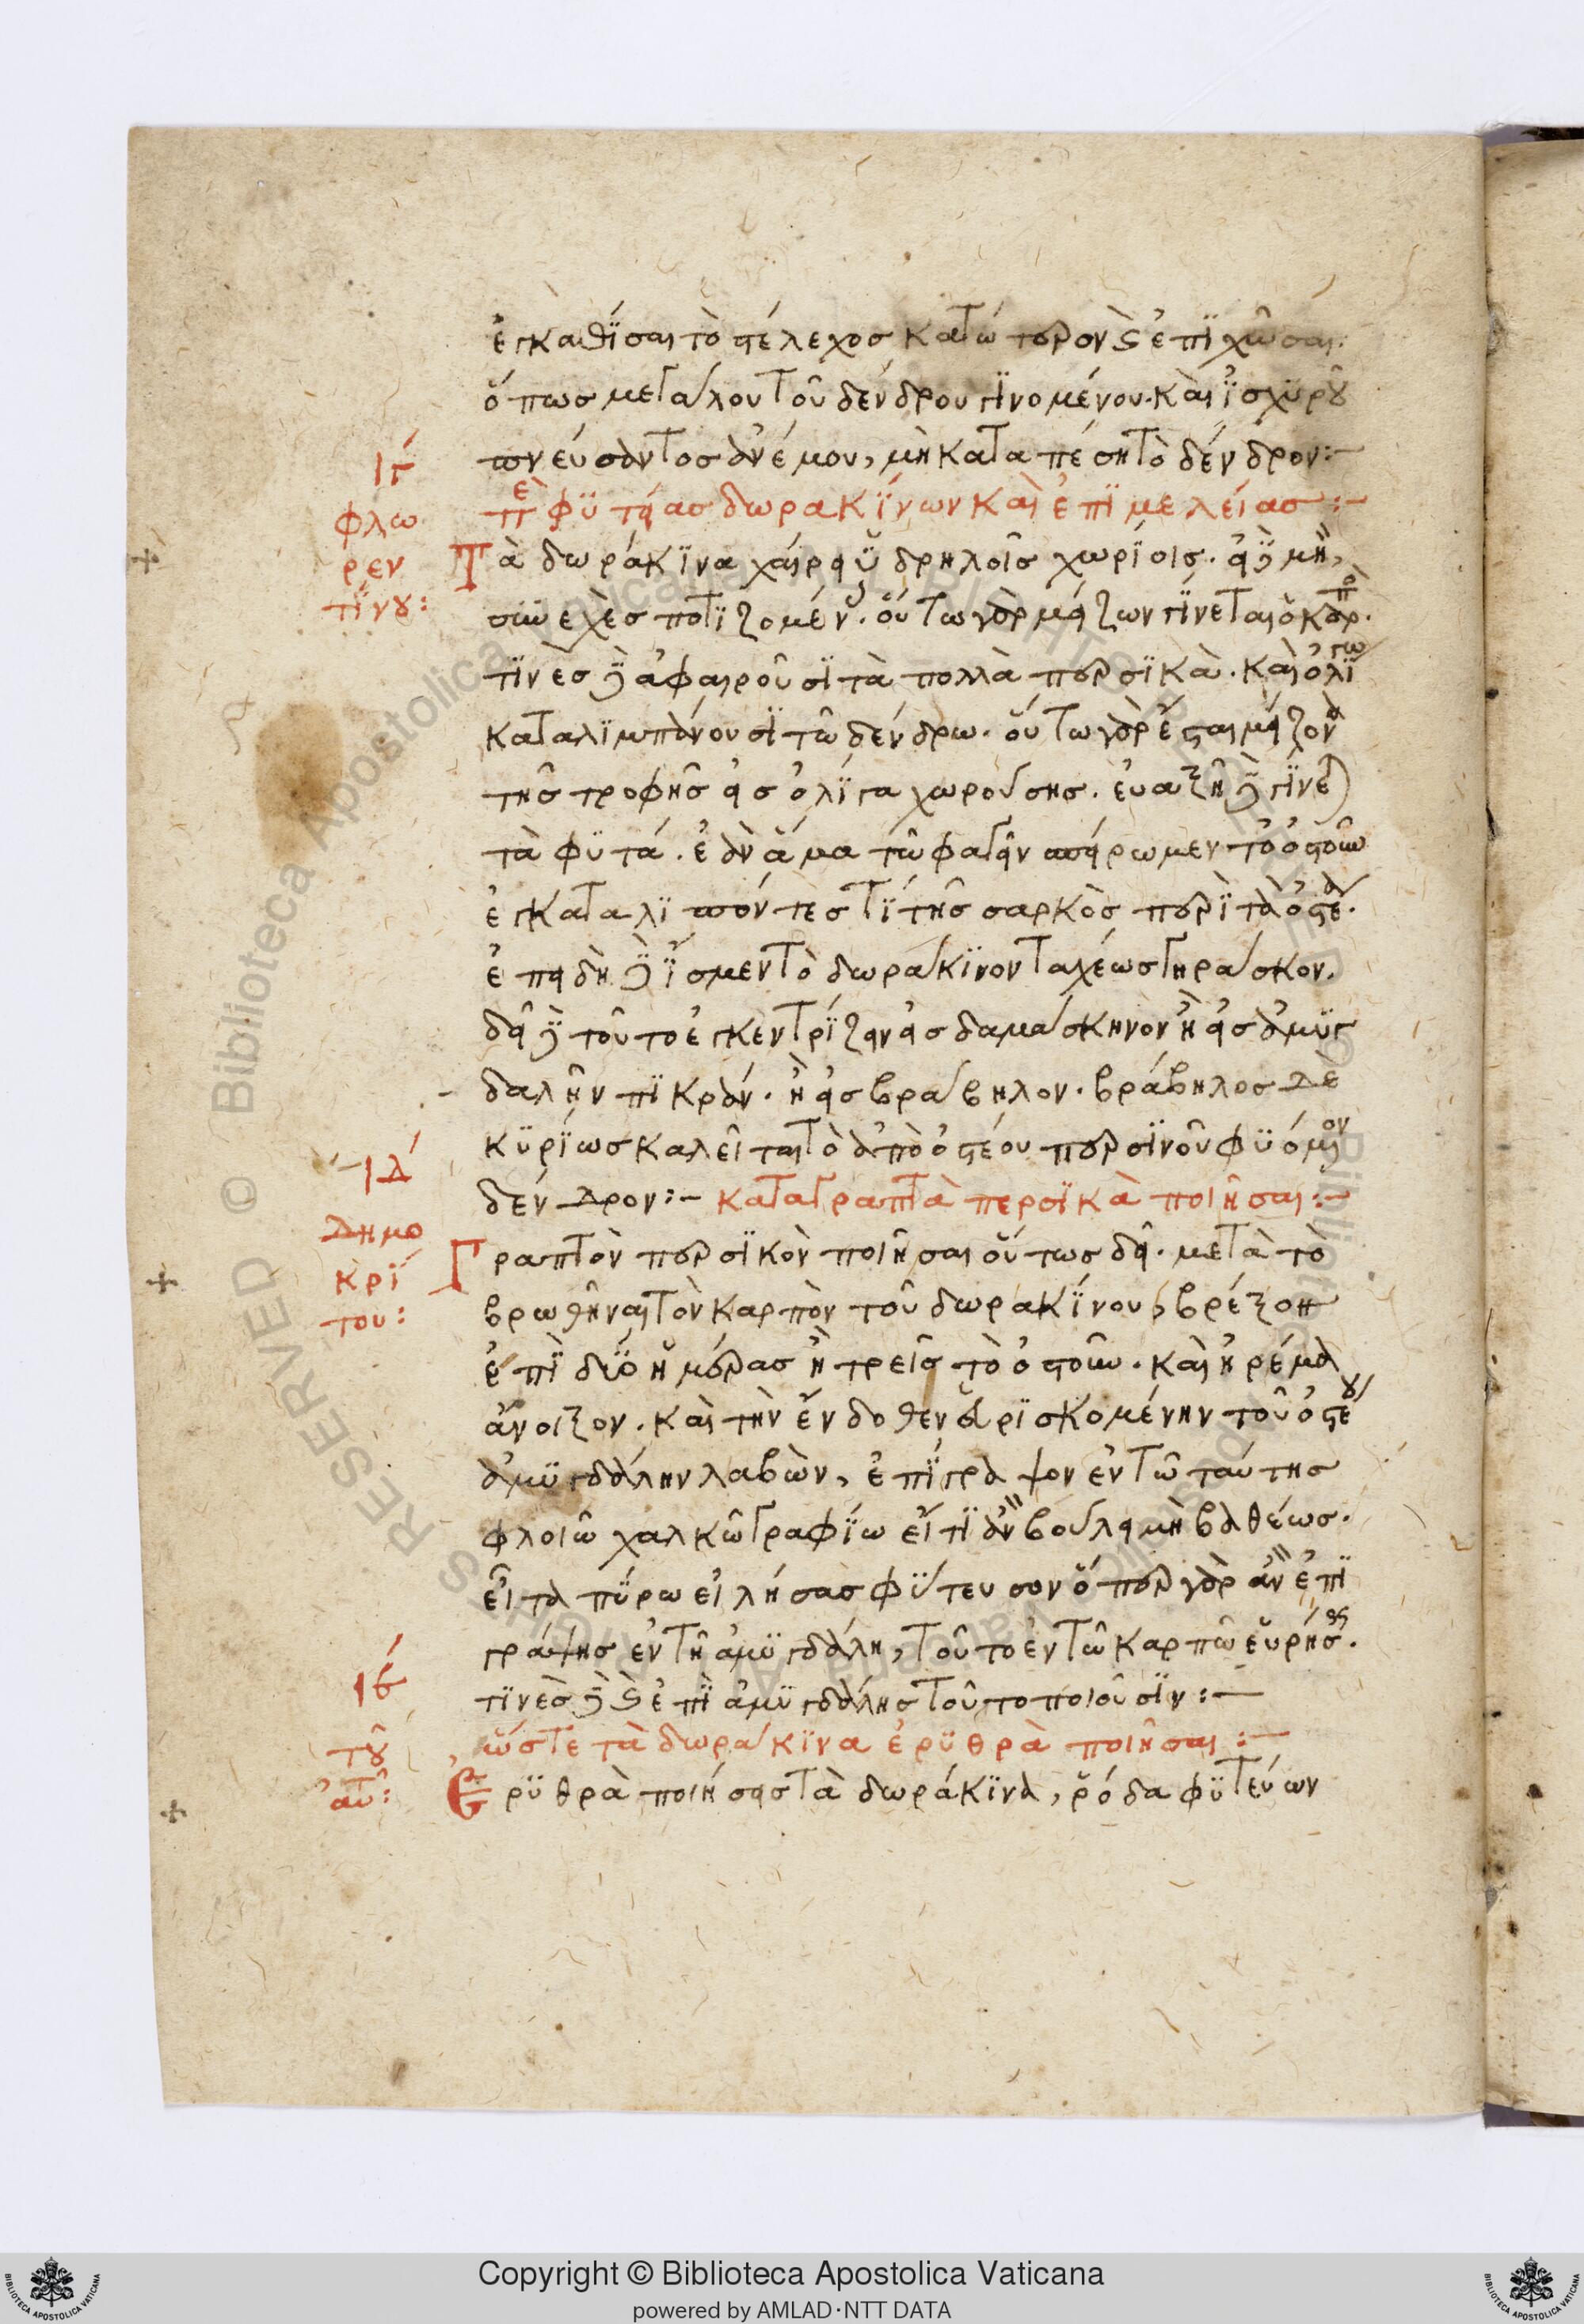 ἐγκαθίσαι τὸ στέλεχος κατώτερον καὶ ἐπιχῶσαι·
ὅπως μεγάλου τοῦ δένδρου γινομένου. καὶ ἰσχυροῦ
πνεύσαντος ἀνέμου, μὴ καταπέσῃ τὸ δένδρον:—
ιγ
πε φυτείας δωρακίνων καὶ ἐπιμελείας:—
φλω
ρεν
τίνου:
Τὰ δωράκινα χαίρει ὑδρηλοῖς χωρίοις. εἰ δὲ μὴ,
συνεχὲς ποτιζομένοις. οὕτω γὰρ μείζων γίνεται ὁ καρπὸ.
τινὲς δὲ ἀφαιροῦσι τὰ πολλὰ περσικὰ. καὶ ὀλίγω
καταλιμπάνουσι τῶ δένδρω. οὕτω γὰρ ἔσται μείζονα
τῆς τροφῆς εἰς ὀλίγα χωρούσης. εὐαξῆ δὲ γίνεται
τὰ φυτά. ἐὰν ἅμα τῶ φαγεῖν σπείρωμεν τὸ ὀστοῦν
ἐγκαταλιπόντες τί τῆς σαρκὸς περὶ τὰ ὀστέα.
ἐπειδὴ δὲ ἴσμεν τὸ δωράκινον ταχέως γηράσκον.
δεῖ δὲ τοῦτο ἐγκεντρίζειν εἰς δαμάσκηνον ἢ εἰς ἀμυγ
δαλῆν πικράν. ἢ εἰς βράβηλον. βράβηλος δὲ
κυρίως καλεῖται τὸ ἀπὸ ὀστέου περσινοῦ φυόμενον
ιδ
δένδρον:— κατάγραπτα περσικὰ ποιῆσαι:—
Δημο
κρί
του:
Γραπτὸν περσικὸν ποιῆσαι οὕτως δεῖ. μετὰ τὸ
βρωθῆναι τὸν καρπὸν τοῦ δωρακίνου, βρέξον
ἐπὶ δύο ἡμέρας ἢ τρεῖς τὸ ὀστοῦν. καὶ ἠρέμα
ἄνοιξον. καὶ τὴν ἔνδοθεν εὑρισκομένην τοῦ ὀστέου
ἀμυγδάλην λαβὼν, ἐπίγραψον ἐν τῶ ταύτης
φλοιῶ χαλκῶ γραφίω εἴ τι ἂν βούλει μὴ βαθέως.
εἶτα πύρω εἰλήσας φύτευσον ὅπερ γὰρ ἂν ἐπι
γράψης ἐν τῆ ἀμυγδάλη, τοῦτο ἐν τῶ καρπῶ εὑρήσεις.
ιε
τινὲς δὲ καὶ ἐπὶ ἀμυγδάλης τοῦτο ποιοῦσιν:—
τοῦ
αὐτ:
ὥστε τὰ δωράκινα ἐρυθρὰ ποιῆσαι:—
Ερυθρὰ ποιήσεις τὰ δωράκινα, ῥόδα φυτεύων
Copyright © Biblioteca Apostolica Vaticana
powered by AMLAD·NTT DATA